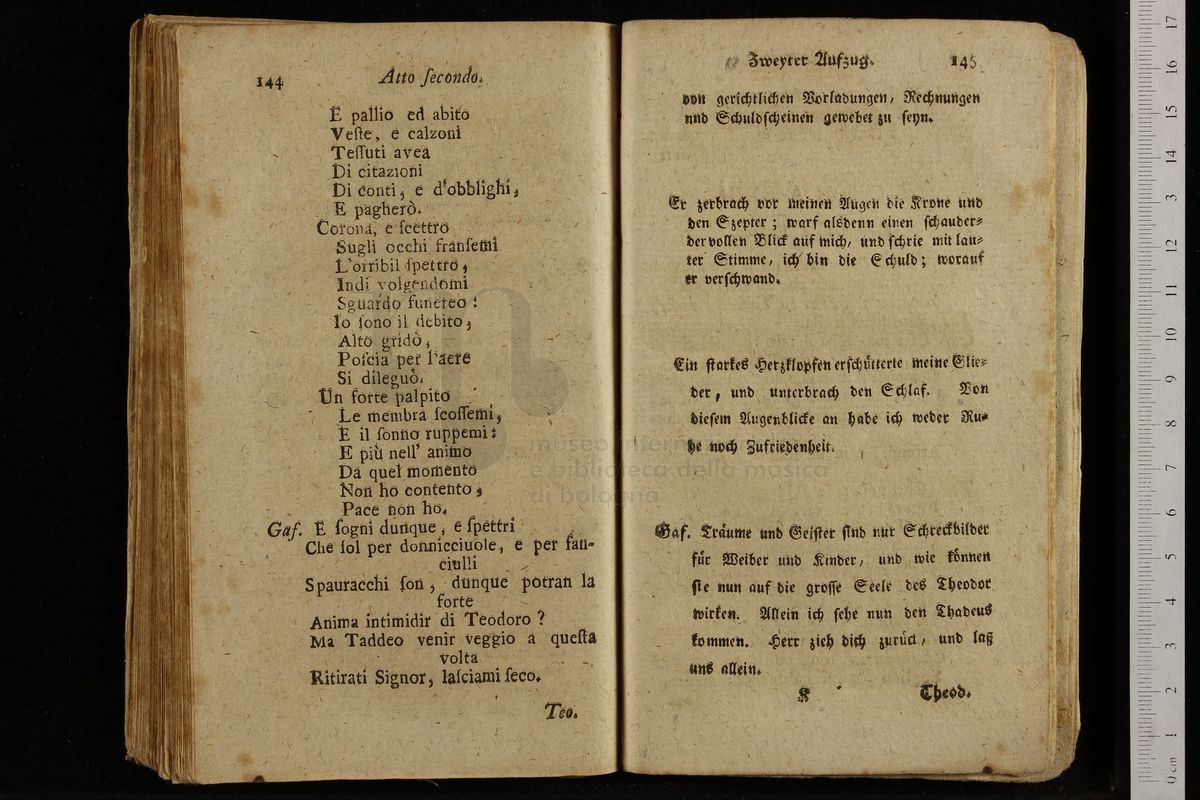 144 Atto ſecondo.
E pallio ed abito
Veſte, e calzoni
Teſſuti avea
Di citazioni
Di conti, e d'obblighi,
E pagherò.
Corona, e ſcettro
Sugli occhi franſemi
L'orribil ſpettro,
Indi volgendomi
Sguardo funereo:
Io ſono il debito,
Alto gridò,
Poſcia per l'aere
Si dileguò.
Un forte palpito
Le membra ſcoſſemi,
E il ſonno ruppemi:
E più nell' animo
Da quel momento
Non ho contento,
Pace non ho.
Gaf. E ſogni dunque, e ſpettri
Che ſol per donnicciuole, e per fan-
ciulli
Spauracchi ſon, dunque potran la
forte
Anima intimidir di Teodoro?
Ma Taddeo venir veggio a queſta
volta
Ritirati Signor, laſciami ſeco.
Teo.
Zweyter Aufzug. 145
von gerichtlichen Vorladungen, Rechnungen
nnd Schuldſcheinen gewebet zu ſeyn.
Er zerbrach vor meinen Augen die Krone und
den Szepter; warf alsdenn einen ſchauder⸗
der vollen Blick auf mich, und ſchrie mit lau⸗
ter Stimme, ich bin die Schuld; worauf
er verſchwand.
Ein ſtarkes Herzklopfen erſchütterte meine Glie⸗
der, und unterbrach den Schlaf. Von
dieſem Augenblicke an habe ich weder Ru⸗
he noch Zufriedenheit.
Gaf. Träume und Geiſter ſind nur Schreckbilder
für Weiber und Kinder, und wie können
ſie nun auf die groſſe Seele des Theodor
wirken. Allein ich ſehe nun den Thadeus
kommen. Herr zieh dich zurück, und laß
uns allein.
K Theod.
museo intern
e biblioteca della musica
di bologna
0 cm 1 2 3 4 5 6 7 8 9 10 11 12 13 14 15 16 17